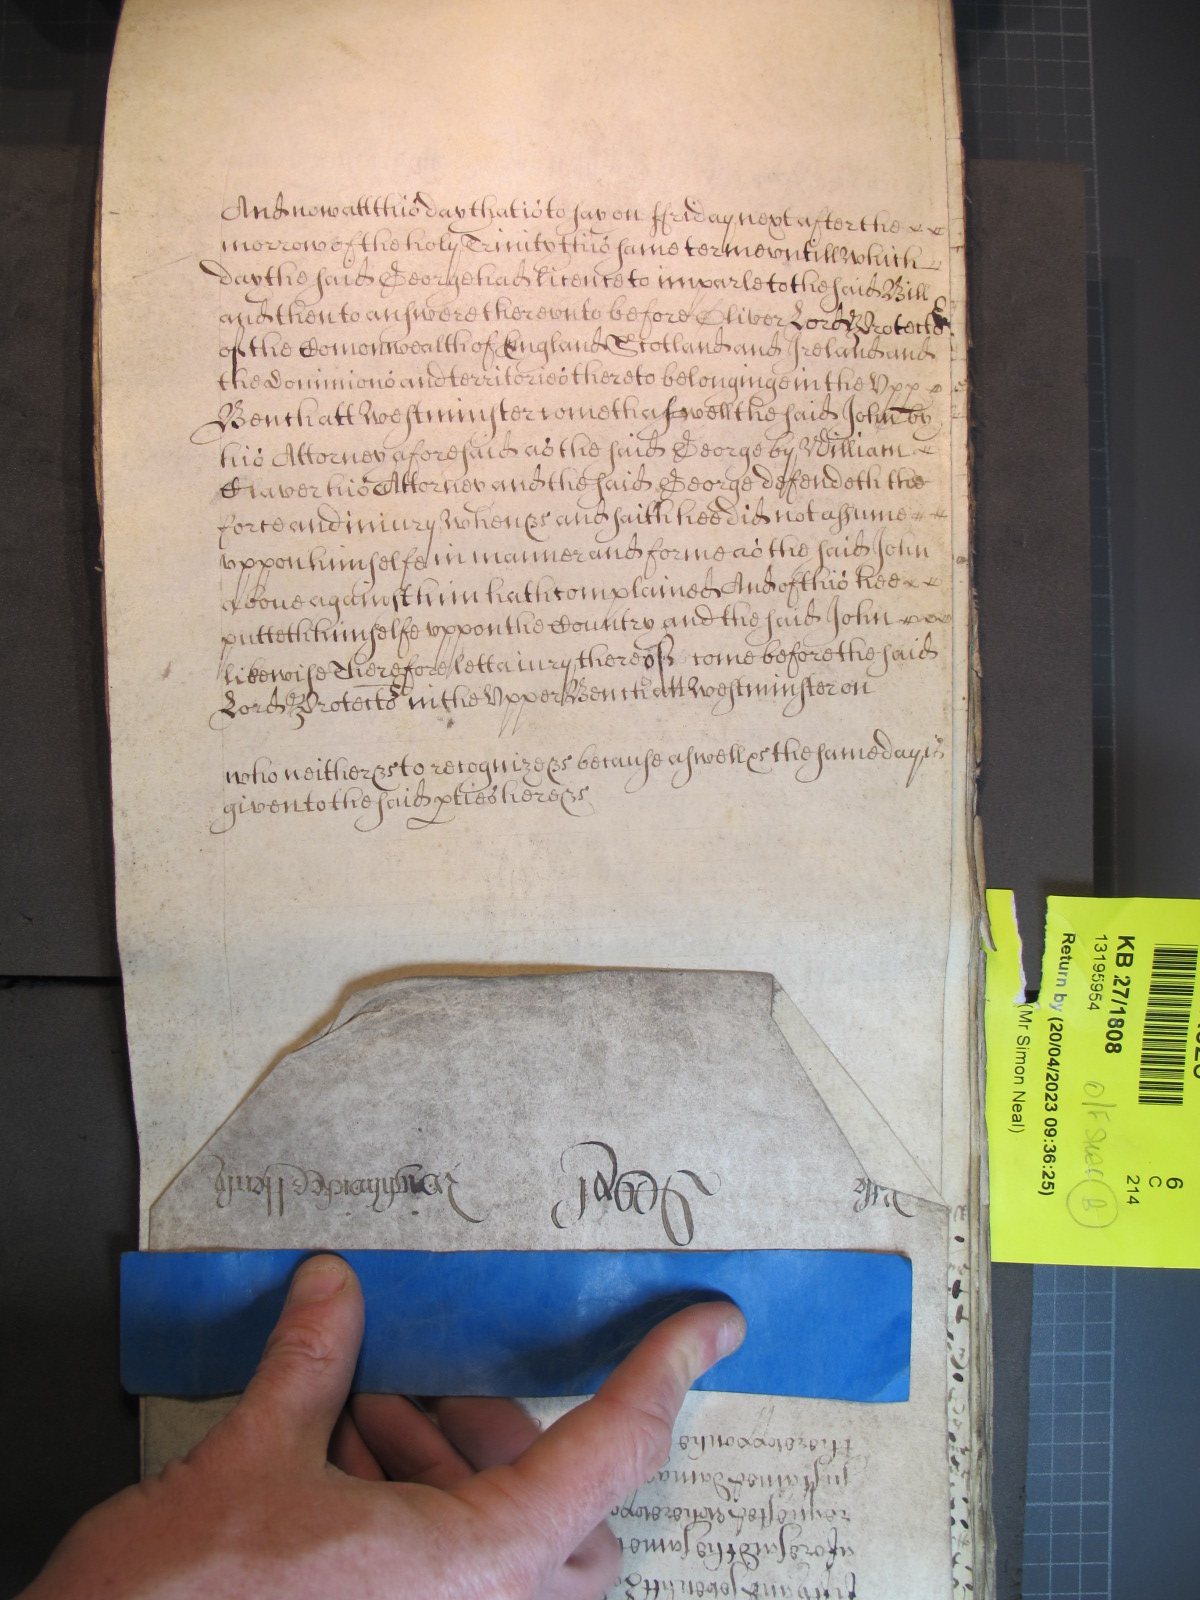 And now att this day that is to say on ffriday next after the
morrow of the holy Trinity this same terme vntill which
day the said George had licence to imparle to the said Bill
and then to answere therevnto before Oliver Lord Protector
of the Comonwealth of England Scotland and Ireland and
the dominions and territories thereto belonginge in the Vpp
Bench att Westminster cometh aswell the said John by
his Attorney aforesaid as the said George by William
his Attorney and the said George defendeth the
force and iniury when &c and saith hee did not assume
vppon himselfe in manner and forme as the said John
aboue against him hath complained And of this hee
putteth himselfe vppon the Country and the said John
likewise Therefore lett a iury thereof come before the said
Lord Protector in the Vpper Bench att Westminster on
who neither &c to recognize &c because aswell &c the same day is
given to the said pties here &c
KB 27/1808
13195954
Return by (20/04/2023 09:36:25)
(Mr Simon Neal)
6
C
214
B
therevppon he
sustained dama
requested Wherevppo
aforesaid the same